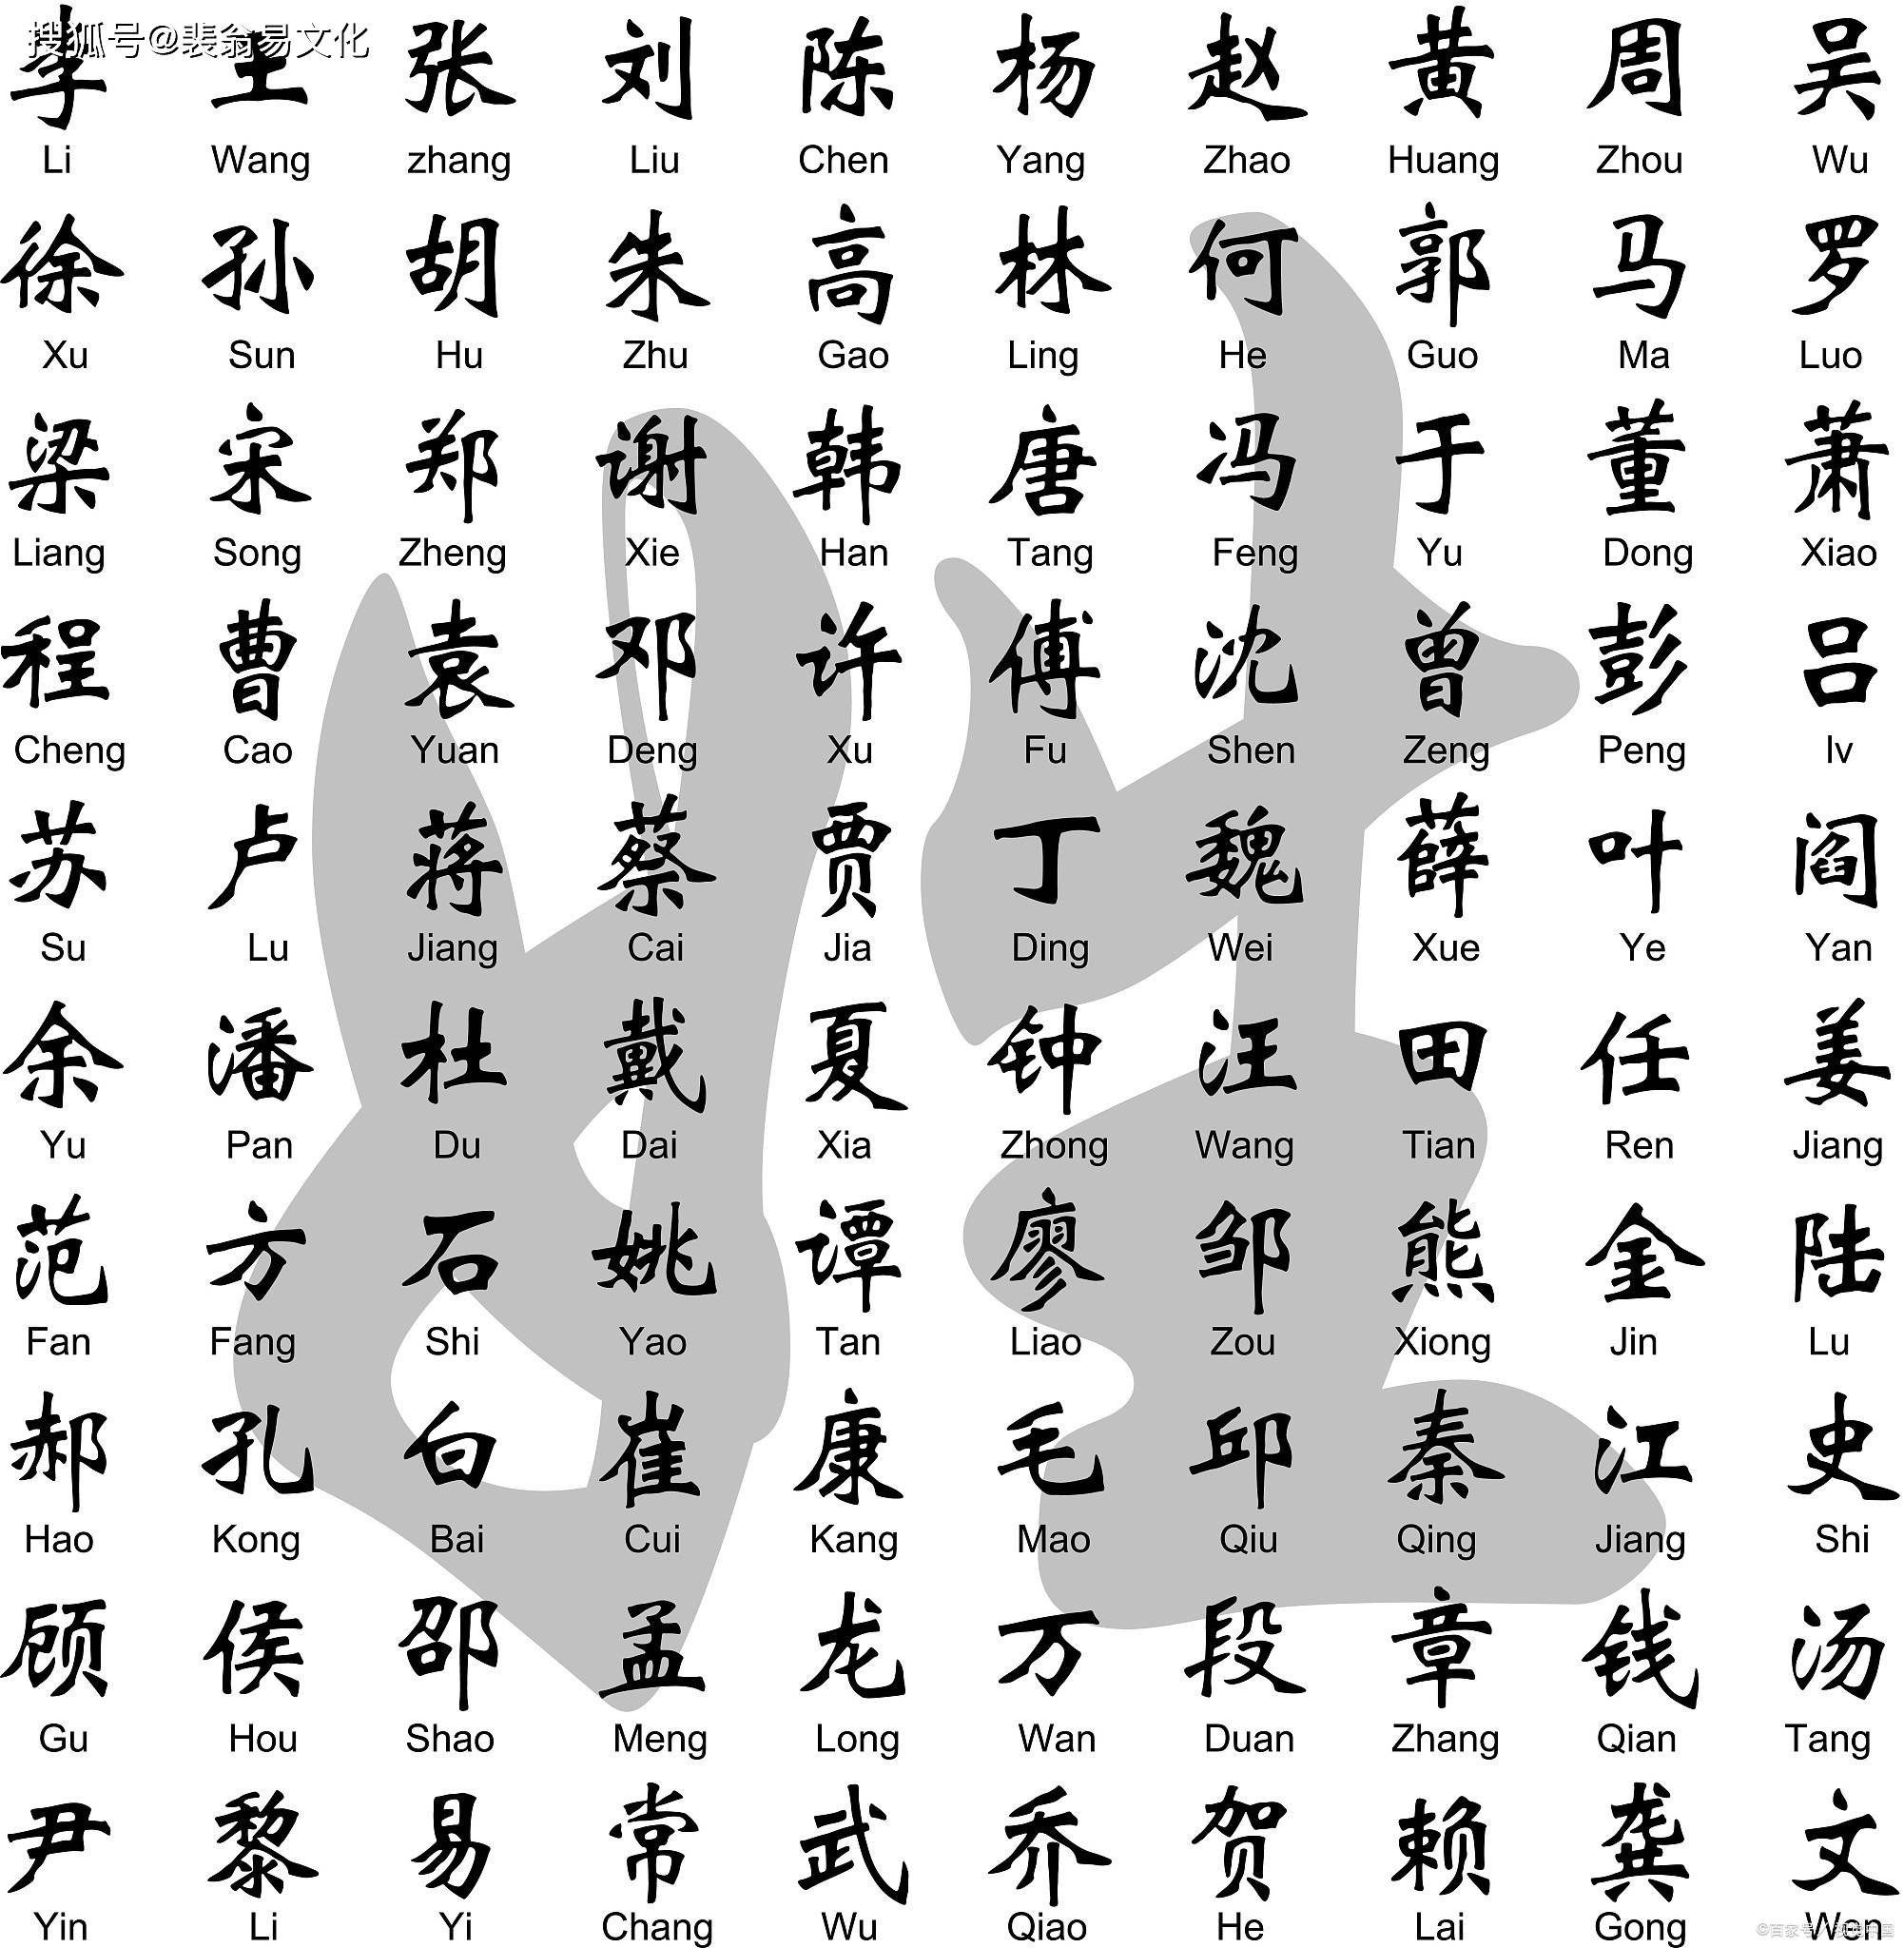 搜狐号@裴翁易文化
李 王 张 刘 陈 杨 赵 黄 周 吴
Li Wang zhang Liu Chen Yang Zhao Huang Zhou Wu
徐 孙 胡 朱 高 林 何 郭 马 罗
Xu Sun Hu Zhu Gao Ling He Guo Ma Luo
梁 宋 郑 谢 韩 唐 冯 于 董 萧
Liang Song Zheng Xie Han Tang Feng Yu Dong Xiao
程 曹 袁 邓 许 傅 沈 曾 彭 吕
Cheng Cao Yuan Deng Xu Fu Shen Zeng Peng lv
苏 卢 蒋 蔡 贾 丁 魏 薛 叶 阎
Su Lu Jiang Cai Jia Ding Wei Xue Ye Yan
余 潘 杜 戴 夏 钟 汪 田 任 姜
Yu Pan Du Dai Xia Zhong Wang Tian Ren Jiang
范 方 石 姚 谭 廖 邹 熊 金 陆
Fan Fang Shi Yao Tan Liao Zou Xiong Jin Lu
郝 孔 白 崔 康 毛 邱 秦 江 史
Hao Kong Bai Cui Kang Mao Qiu Qing Jiang Shi
顾 侯 邵 孟 龙 万 段 章 钱 汤
Gu Hou Shao Meng Long Wan Duan Zhang Qian Tang
尹 黎 易 常 武 乔 贺 赖 龚 文
Yin Li Yi Chang Wu Qiao He Lai Gong Wen
©百家号／视觉中国
姓